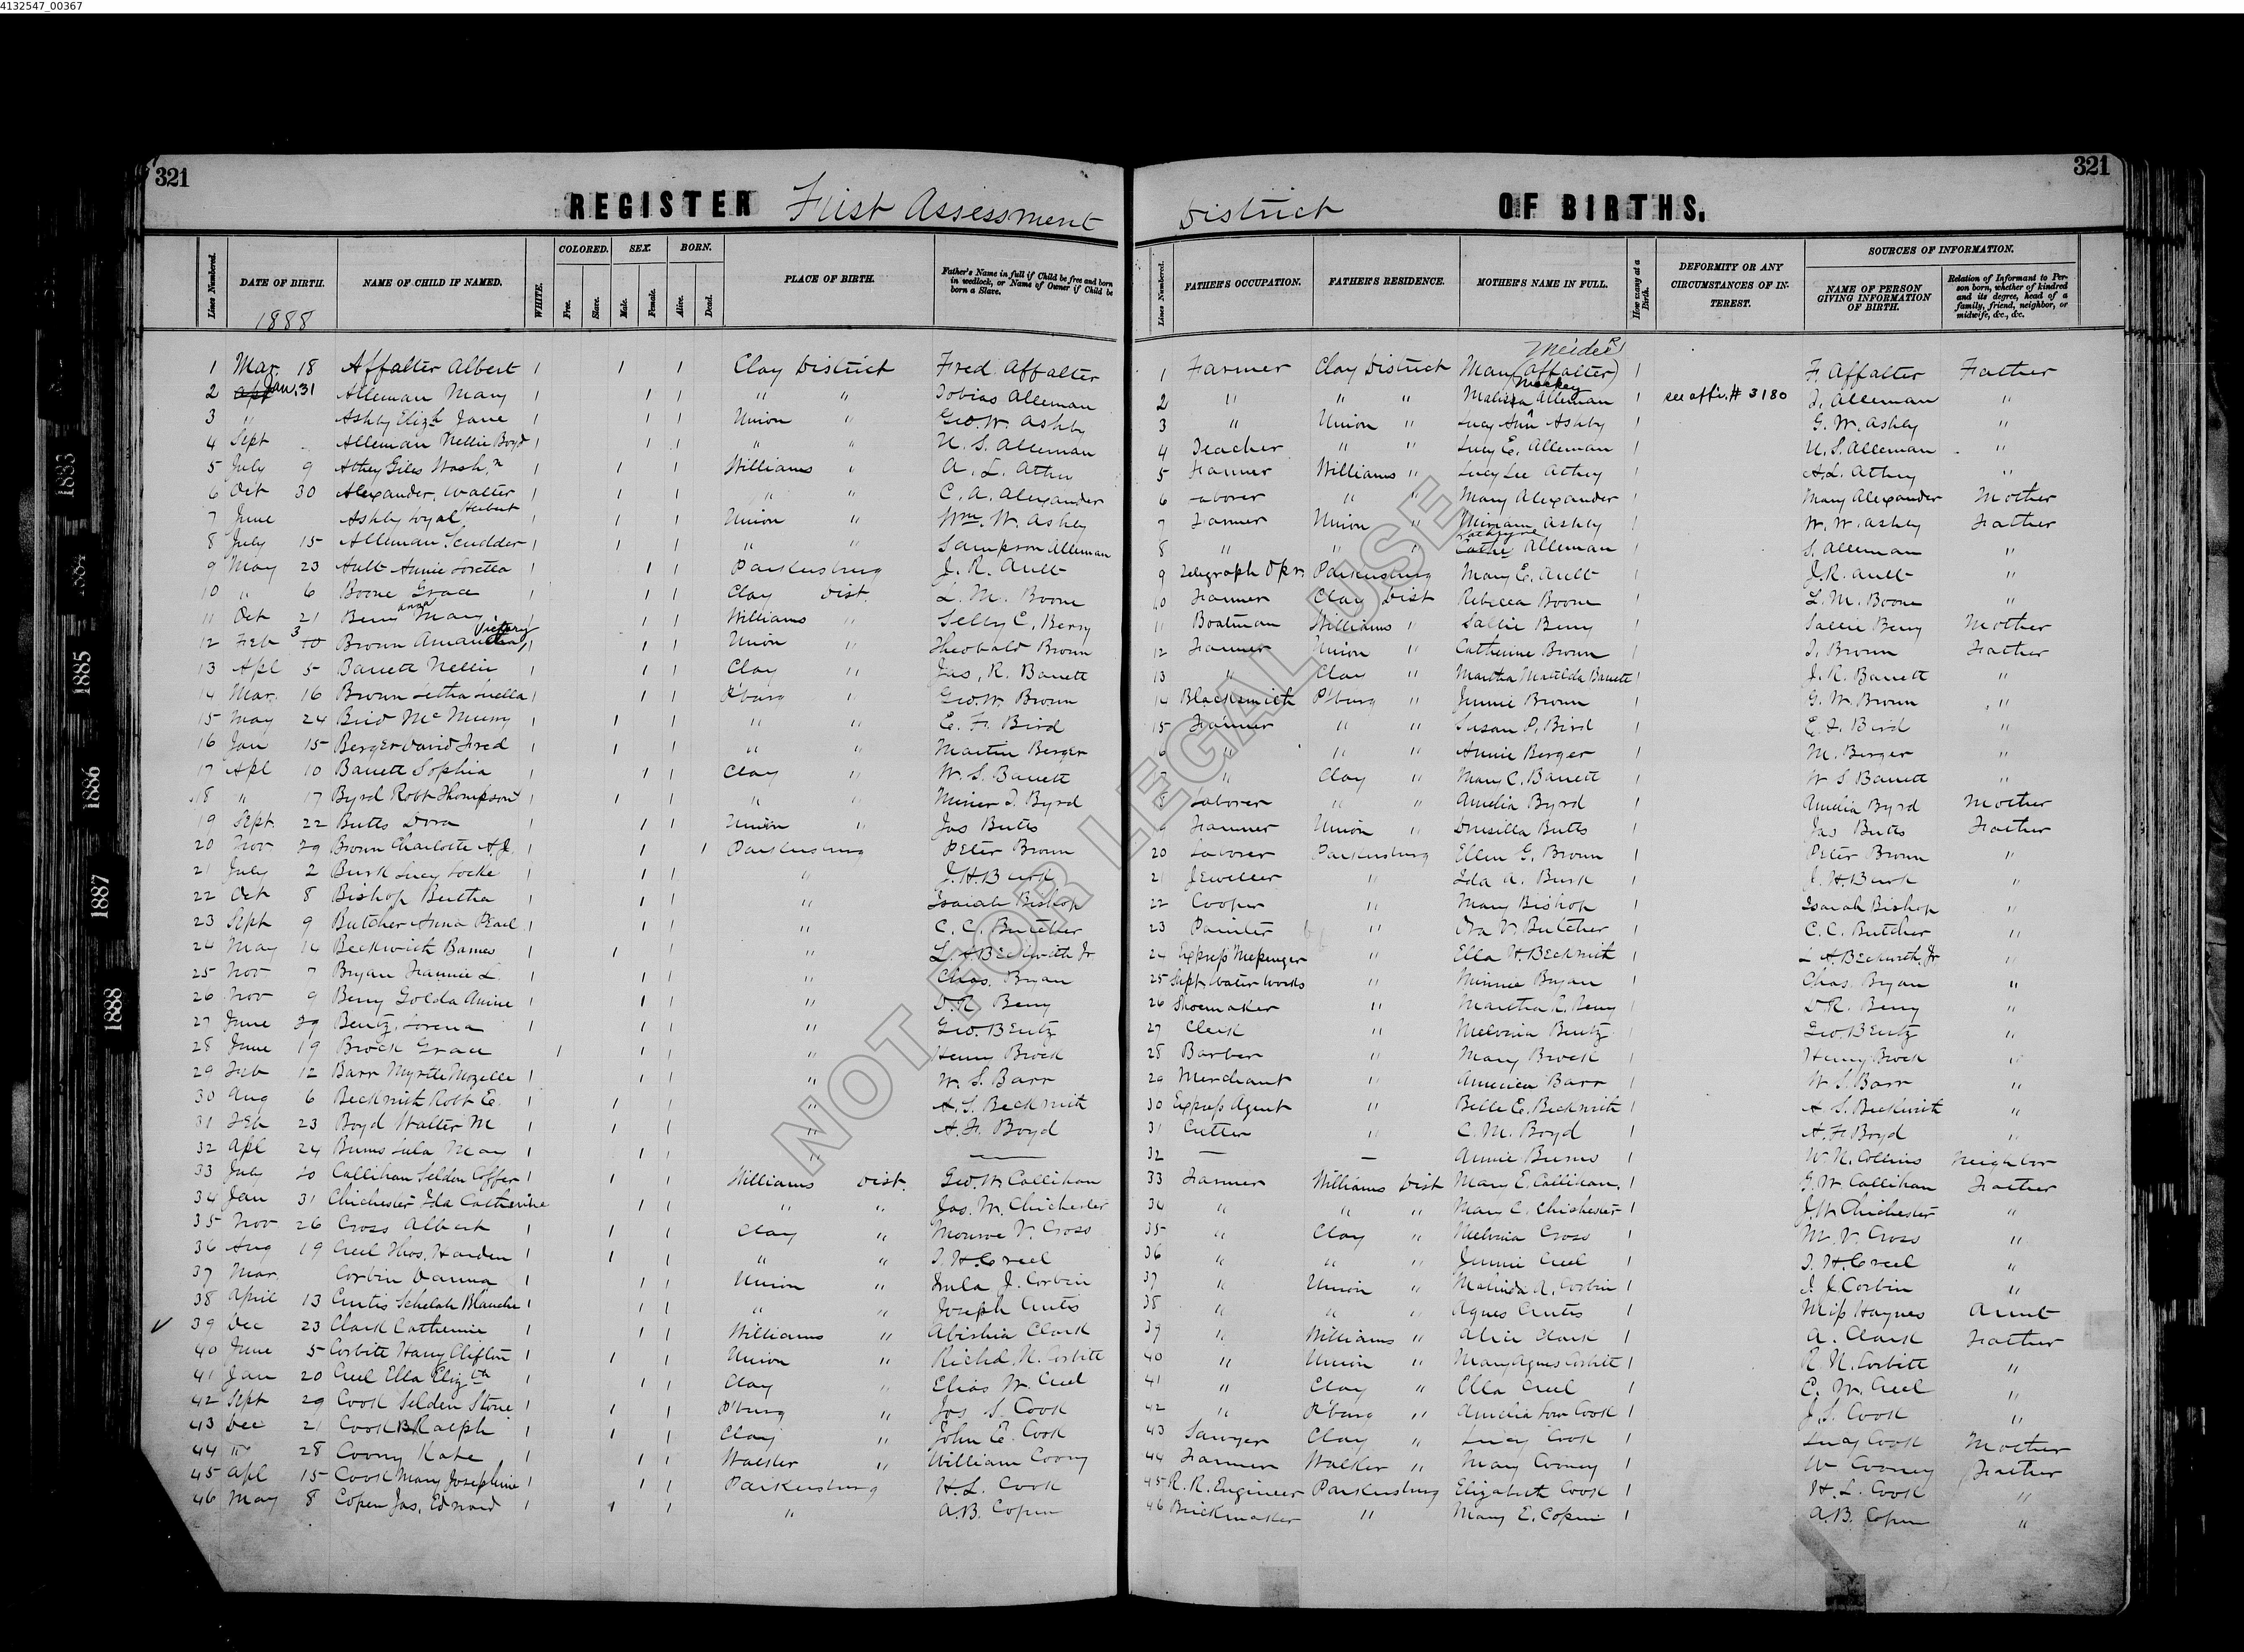 4132547_00367
321
321
REGISTER First Assessment District OF BIRTHS.
Lines Numbered. DATE OF BIRTH. NAME OF CHILD IF NAMED. WHITE. COLORED. Free. Slave. SEX. Male. Female. BORN. Alive. Dead. PLACE OF BIRTH. Father's Name in full if Child be free and born in wedlock, or Name of Owner if Child be born a Slave.
Lines Numbered. FATHER'S OCCUPATION. FATHER'S RESIDENCE. MOTHER'S NAME IN FULL. How many at a Birth. DEFORMITY OR ANY CIRCUMSTANCES OF INTEREST. SOURCES OF INFORMATION. NAME OF PERSON GIVING INFORMATION OF BIRTH. Relation of Informant to Person born, whether of kindred and its degree, head of a family, friend, neighbor, or midwife, &c., &c.
1888
1 Mar 18 Affalter Albert 1 1 1 Clay District Fred Affalter 1 Farmer Clay District Mary (Affalter) 1 F. Affalter Father
2 Jan. 31 Alleman Mary 1 1 1 " " Tobias Alleman 2 " " " Alleman 1 see affi. # 3180 T. Alleman "
3 " Ashby Eliz Jane 1 1 1 Union " Geo. W. Ashby 3 " Union " Lucy Ann Ashby 1 G. W. Ashby "
4 Sept Alleman Nellie Boyd 1 1 1 " " U. S. Alleman 4 Teacher " " Lucy E. Alleman 1 U. S. Alleman "
5 July 9 Athey Giles Wash,n 1 1 1 Williams " A. L. Athey 5 Farmer Williams " Lucy Lee Athey 1 A. L. Athey "
6 Oct 30 Alexander, Walter 1 1 1 " " C. A. Alexander 6 Laborer " " Mary Alexander 1 Mary Alexander Mother
7 June Ashby Loyal Herbert 1 1 1 Union " Wm. W. Ashby 7 Farmer Union " Miriam Ashby 1 W. W. Ashby Father
8 July 15 Alleman Scudder 1 1 1 " " Sampson Alleman 8 " " " Alleman 1 S. Alleman "
9 May 23 Ault Annie Loretta 1 1 1 Parkersburg J. R. Ault 9 Telegraph Opr. Parkersburg Mary E. Ault 1 J. R. Ault "
10 " 6 Boone Grace 1 1 1 Clay Dist. L. M. Boone 10 Farmer Clay Dist Rebecca Boone 1 L. M. Boone "
11 Oct 21 Berry Anna Mary 1 1 1 Williams " Selby C. Berry 11 Boatman Williams " Sallie Berry 1 Sallie Berry Mother
12 Feb 3 Brown Amanda Victory 1 1 1 Union " Theobald Brown 12 Farmer Union " Catherine Brown 1 T. Brown Father
13 Apl 5 Barrett Nellie 1 1 1 Clay " Jas. R. Barrett 13 " Clay " Martha Matilda Barrett 1 J. R. Barrett "
14 Mar. 16 Brown Letha Luella 1 1 1 P'burg " Geo. W. Brown 14 Blacksmith P'burg " Jennie Brown 1 G. W. Brown "
15 May 24 Bird McMurry 1 1 1 " " E. F. Bird 15 Farmer " " Susan P. Bird 1 E. F. Bird "
16 Jan 15 Berger David Fred 1 1 1 " " Martin Berger 6 " " " Annie Berger 1 M. Berger "
17 Apl 10 Barrett Sophia 1 1 1 Clay " W. S. Barrett 7 " Clay " Mary C. Barrett 1 W. S. Barrett "
18 " 17 Byrd Robt Thompson 1 1 1 " " Miner T. Byrd 8 Laborer " " Amelia Byrd 1 Amelia Byrd Mother
19 Sept. 22 Butts Dora 1 1 1 Union " Jas Butts 9 Farmer Union " Drusilla Butts 1 Jas Butts Father
20 Nov 29 Brown Charlotte A. J. 1 1 1 Parkersburg Peter Brown 20 Laborer Parkersburg Ellen G. Brown 1 Peter Brown "
21 July 2 Burk Lucy Locke 1 1 1 " J. H. Burk 21 Jeweller " Ida A. Burk 1 J. H. Burk "
22 Oct 8 Bishop Bertha 1 1 1 " Isaiah Bishop 22 Cooper " Mary Bishop 1 Isaiah Bishop "
23 Sept 9 Butcher Anna Pearl 1 1 1 " C. C. Butcher 23 Painter " Ora V. Butcher 1 C. C. Butcher "
24 May 14 Beckwith Barnes 1 1 1 " L. A. Beckwith Jr 24 Express Messenger " Ella H. Beckwith 1 L. A. Beckwith, Jr "
25 Nov 7 Bryan Fannie L. 1 1 1 " Chas. Bryan 25 Supt. Water Works " Minnie Bryan 1 Chas. Bryan "
26 Nov 9 Berry Golda Annie 1 1 1 " D. R. Berry 26 Shoemaker " Martha R. Berry 1 D. R. Berry "
27 June 29 Bentz, Lorena 1 1 1 " Geo. Bentz 27 Clerk " Melvina Bentz 1 Geo. Bentz "
28 June 19 Brock Grace 1 1 1 " Henry Brock 28 Barber " Mary Brock 1 Henry Brock "
29 Feb 12 Barr Myrtle Mozelle 1 1 1 " W. S. Barr 29 Merchant " America Barr 1 W. S. Barr "
30 Aug 6 Beckwith Robt E. 1 1 1 " A. S. Beckwith 30 Express Agent " Belle E. Beckwith 1 A. S. Beckwith "
31 Feb 23 Boyd Walter M 1 1 1 " A. F. Boyd 31 Cutter " C. M. Boyd 1 A. F. Boyd "
32 Apl 24 Burns Lula May 1 1 1 " — 32 — — Annie Burns 1 W. N. Collins Neighbor
33 July 20 Callihan Selden Coffer 1 1 1 Williams Dist. Geo. W. Callihan 33 Farmer Williams Dist Mary E. Callihan, 1 G. W. Callihan Father
34 Jan 31 Chichester Ida Catherine 1 1 " " Jas. W. Chichester 34 " " " Mary C. Chichester 1 J. W. Chichester "
35 Nov 26 Cross Albert 1 1 1 Clay " Monroe V. Cross 35 " Clay " Melvina Cross 1 M. V. Cross "
36 Aug 19 Creel Thos. Harden 1 1 1 " " T. H. Creel 36 " " " Jennie Creel 1 T. H. Creel "
37 Mar. Corbin 1 1 1 Union " J. Corbin 37 " Union " Malinda A. Corbin 1 Corbin "
38 April 13 Curtis Schelah Blanche 1 1 1 " " Joseph Curtis 38 " " " Agnes Curtis 1 Miss Haynes Aunt
39 Dec 23 Clark Catherine 1 1 1 Williams " Abishia Clark 39 " Williams " Alice Clark 1 A. Clark Father
40 June 5 Corbitt Harry Clifton 1 1 1 Union " Richd. N. Corbitt 40 " Union " Mary Agnes Corbitt 1 R. N. Corbitt "
41 Jan 20 Creel Ella Elizbth 1 1 1 Clay " Elias W. Creel 41 " Clay " Ella Creel 1 E. W. Creel "
42 Sept 29 Cook Selden Stone 1 1 1 P'burg " Jas S. Cook 42 " P'burg " Amelia Lou Cook 1 J. S. Cook "
43 Dec 21 Cook B Ralph 1 1 1 Clay " John E. Cook 43 Sawyer Clay " Lucy Cook 1 Lucy Cook Mother
44 " 28 Coony Kate 1 1 1 Walker " William Coony 44 Farmer Walker " Mary Cooney 1 W Cooney Father
45 Apl 15 Cook Mary Josephine 1 1 1 Parkersburg H. L. Cook 45 R. R. Engineer Parkersburg Elizabeth Cook 1 H. L. Cook "
46 May 8 Copen Jas. Edward 1 1 1 " A. B. Copen 46 Brickmaker " Mary E. Copen 1 A. B. Copen "
NOT FOR LEGAL USE
1883
1884
1885
1886
1887
1888